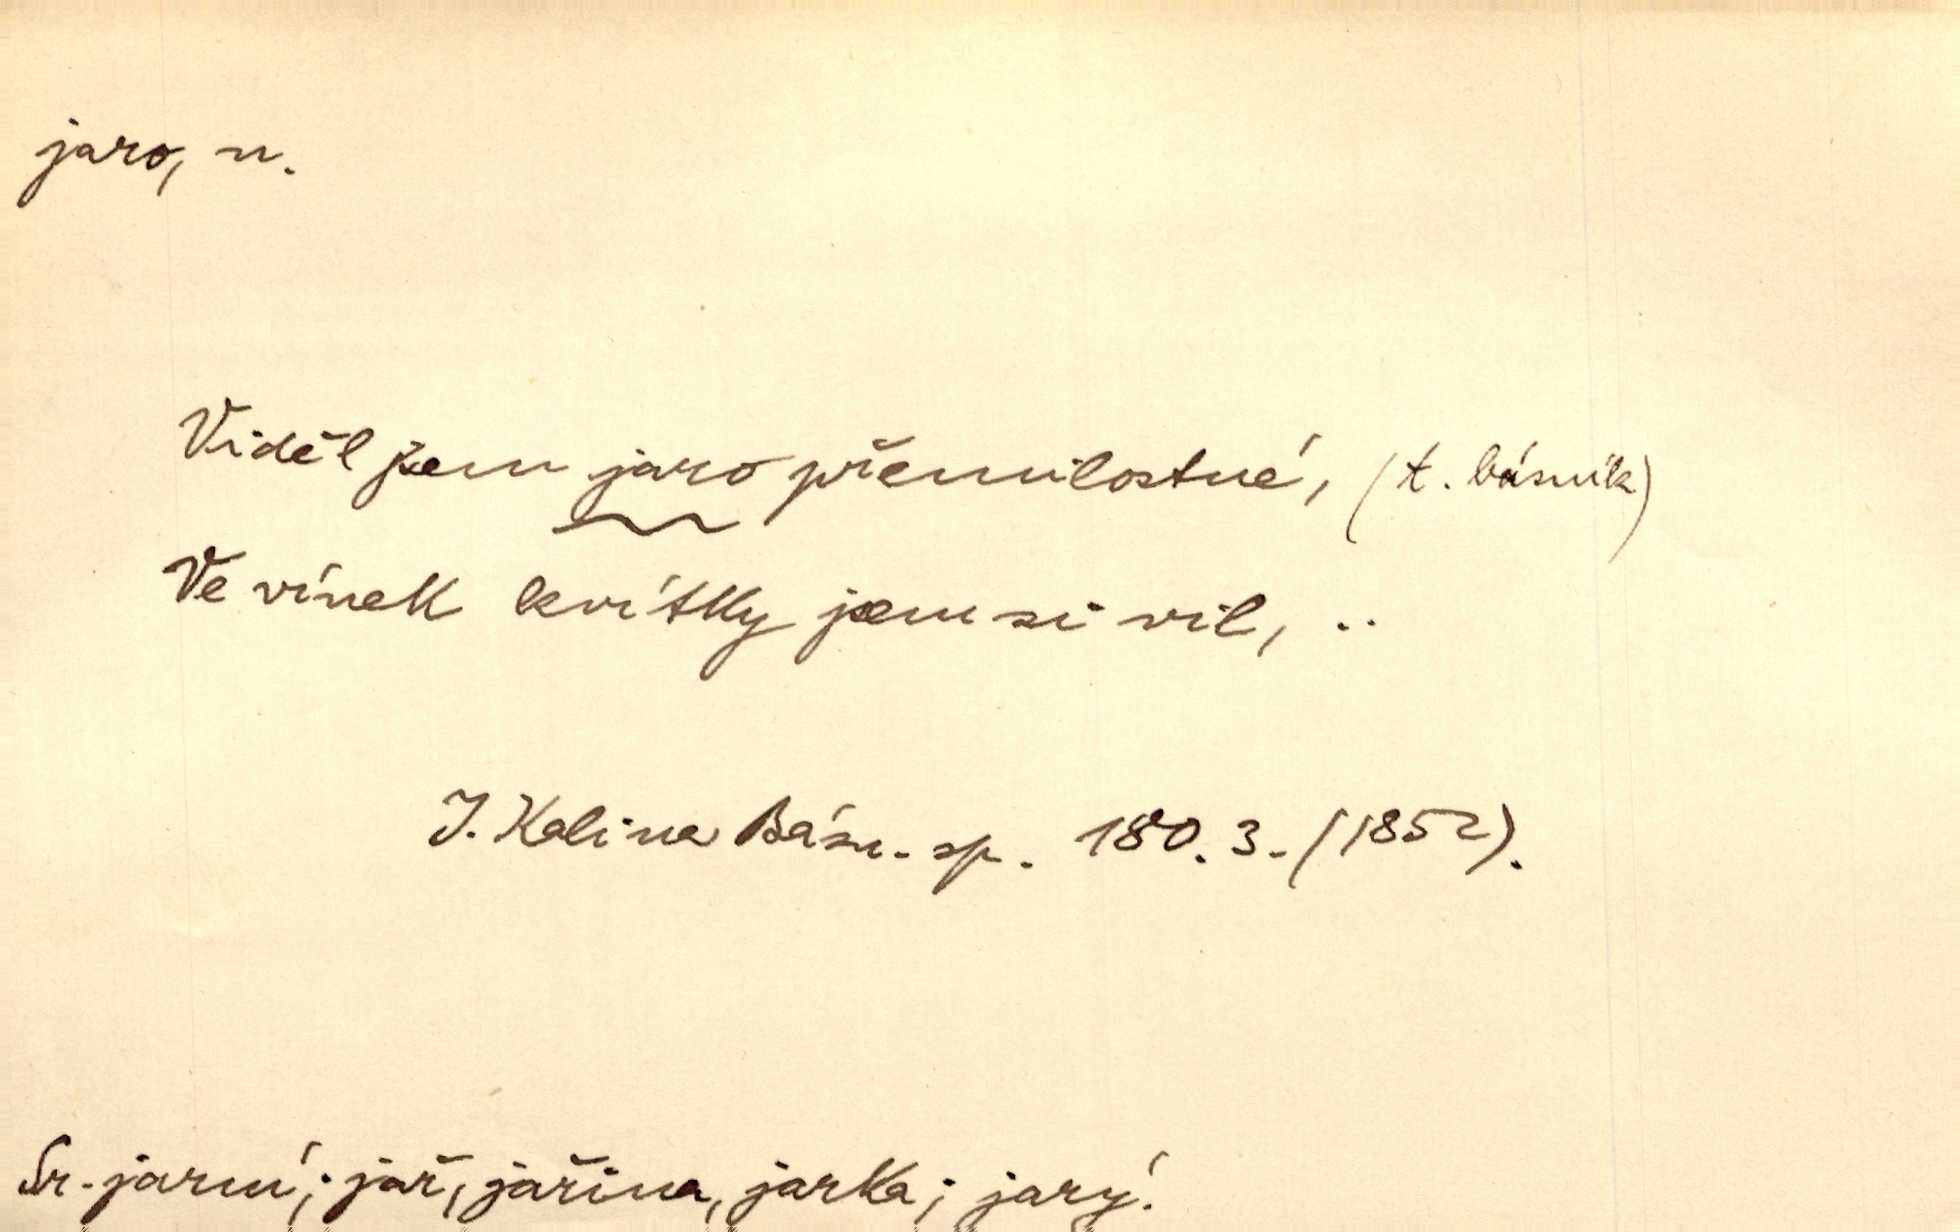 jaro, n.
Viděl jsem jaro přemilostné, (t. básník)
Ve vínek kvítky jsem si vil, ..
J. Kalina Básn. sp. 180. 3. (1852).
Sr. jarní; jař, jařina, jarka; jarý.